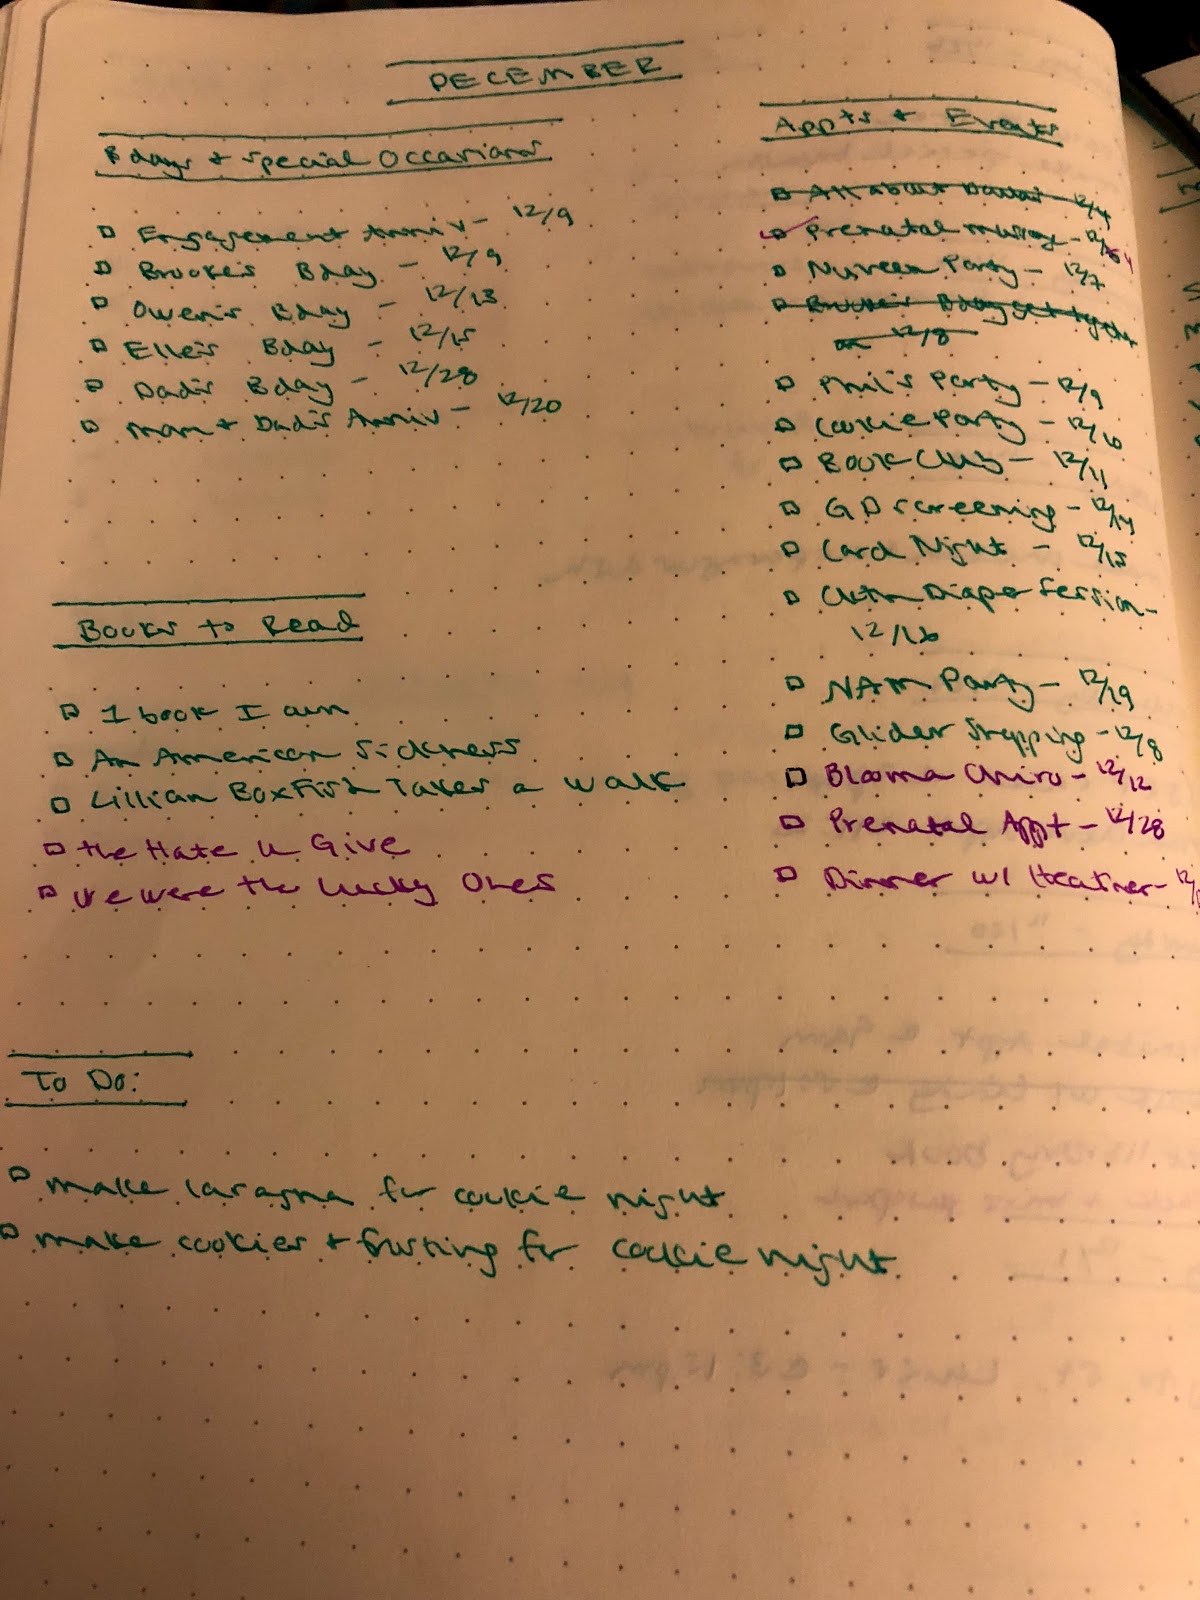 DECEMBER
Bdays + Special Occasions
Engagement Anniv - 12/9
Brooke's Bday - 12/9
Owen's Bday - 12/13
Elle's Bday - 12/15
Dad's Bday - 12/28
Mom + Dad's Anniv - 12/20
Books to Read
1 book I own
An American Sickness
Lillian BoxFish Takes a Walk
The Hate U Give
We were the Lucky Ones
To Do:
make lasagna for cookie night
make cookies + frosting for cookie night
Appts + Events
All about - 12/4
Prenatal - 12/
Party - 12/7
Brooke's Bday get together
12/8
Phil's Party - 12/9
Cookie Party - 12/10
Book Club - 12/11
GD screening - 12/14
Card Night - 12/15
Cloth Diaper Session -
12/16
Party - 12/19
Glider Shopping - 12/8
Blooma Chiro - 12/12
Prenatal Appt - 12/28
Dinner w/ Heather - 12/